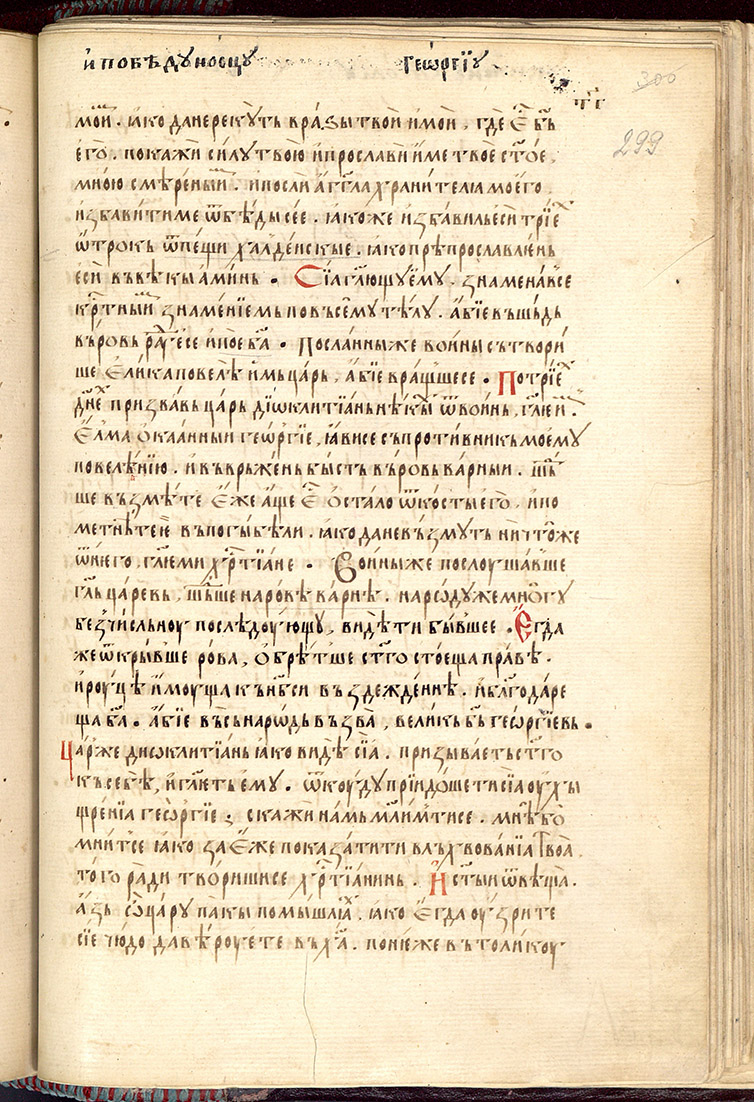 и побѣдоносцу георгїу
300
299
мои҆ . ꙗко да не рекꙋть врази твои и мои , где е҆ бъ
его . покажи силꙋ твою и прослави име твое ст҃ое ,
мною смѣреныи . и посли агг҃ла хранителꙗ моего
избавити ме ѿ бѣды сее . ꙗкоже избавиль еси трїе
ѿтрокь ѿ пещи халдеискые . ꙗко прѣпрославлѥнь
еси въ вѣкы аминь . Сїа гл҃ющуему . знаменавсе
кр҃тныи знаменїемь по въсемꙋ тѣлꙋ . абїе въшьдь
въ ровь рагесе и пое ба҃ . Посланныже воины сътвори
ше елика повелѣ имь царь , абїе вращшесе . По трїе
дн҃е призвавь царь дїѡклитїань нѣкы ѿ воинь , гл҃е и
Елма окаанныи георгїе , ꙗви се съпротивникъ моемꙋ
повелѣнїю . и въврьжень бысть въ ровь варныи . шь
ше възмѣте еже аще е остало ѿ костыи его , и по
метнѣте ѥ въ погыбѣли . ꙗко да не възмꙋть ничтоже
ѿ него , гл҃емы хр҃тїане . Воиныже послоушавше
гл҃ь царевь , шьше на ровѣ варнѣ . народꙋже многꙋ
безчисльноу послѣдоующꙋ , видѣти бывшее . Егда
же ѿкрывше рова , обрѣтше ст҃го стоеща правѣ .
и роуцѣ имоуща къ нб҃си въздежденнѣ . и благодаре
ща ба҃ . Абїе въсь народь възва , великь бь҃ георгїевь .
Царже диѡклитїань ꙗко видѣ сїа . призываеть ст҃го
къ себѣ , и гл҃еть емꙋ . ѿкоудꙋ прїидоше ти сїа оухы
щренїа георгїе ; скажи намь млимтисе . мнѣ бо
мнитсе ꙗко за еже показати ти влъхвованїа твоа
того ради творишисе хр҃тїанинь . И ст҃ыи ѿвѣща .
азь ѡ царꙋ пакы помышлꙗ . ꙗко егда оузрите
сїе чюдо да вѣроуете въ ха҃ . понѥже въ толикоу